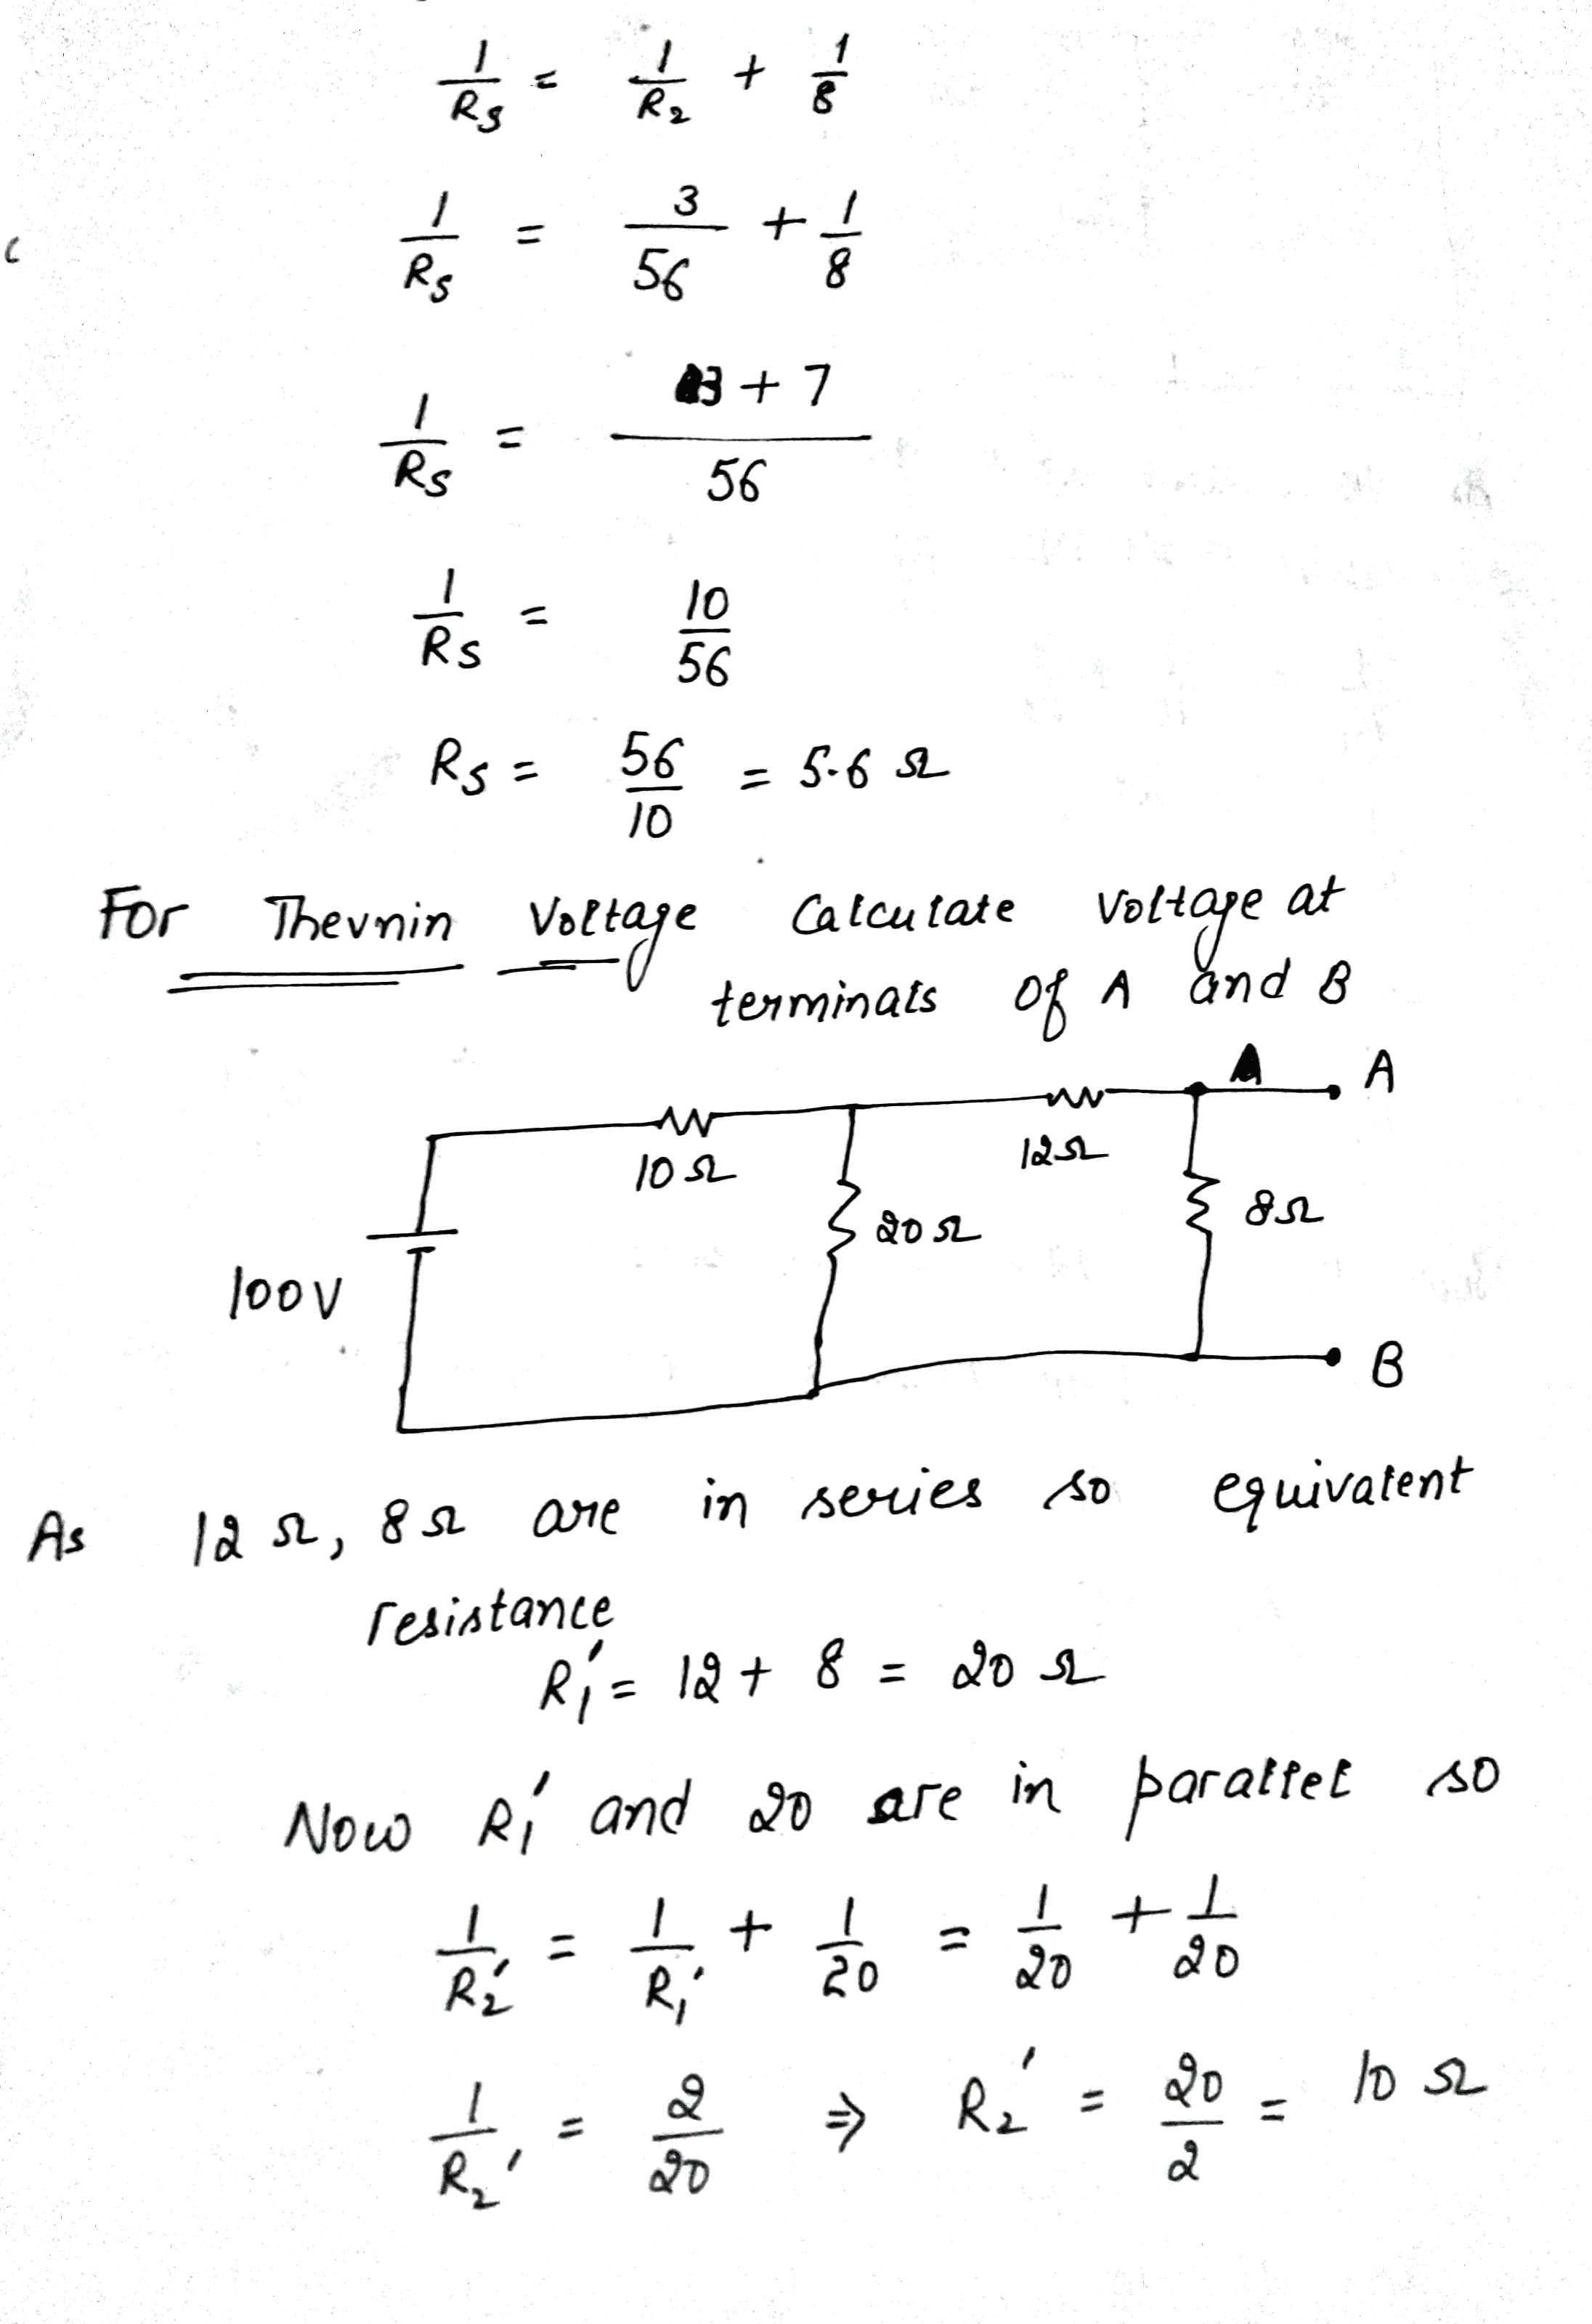 1/R3 = 1/R2 + 1/8
1/Rs = 3/56 + 1/8
1/Rs = 3 + 7/56
1/Rs = 10/56
Rs = 56/10 = 5.6 Ω
For Thevnin Voltage Calculate Voltage at
terminals of A and B
A A
10Ω 12Ω
20Ω 8Ω
100V
B
As 12 Ω, 8Ω are in series so equivalent
resistance
R1' = 12 + 8 = 20 Ω
Now R1' and 20 are in parallel so
1/R2' = 1/R1' + 1/20 = 1/20 + 1/20
1/R2' = 2/20 ⇒ R2' = 20/2 = 10 Ω